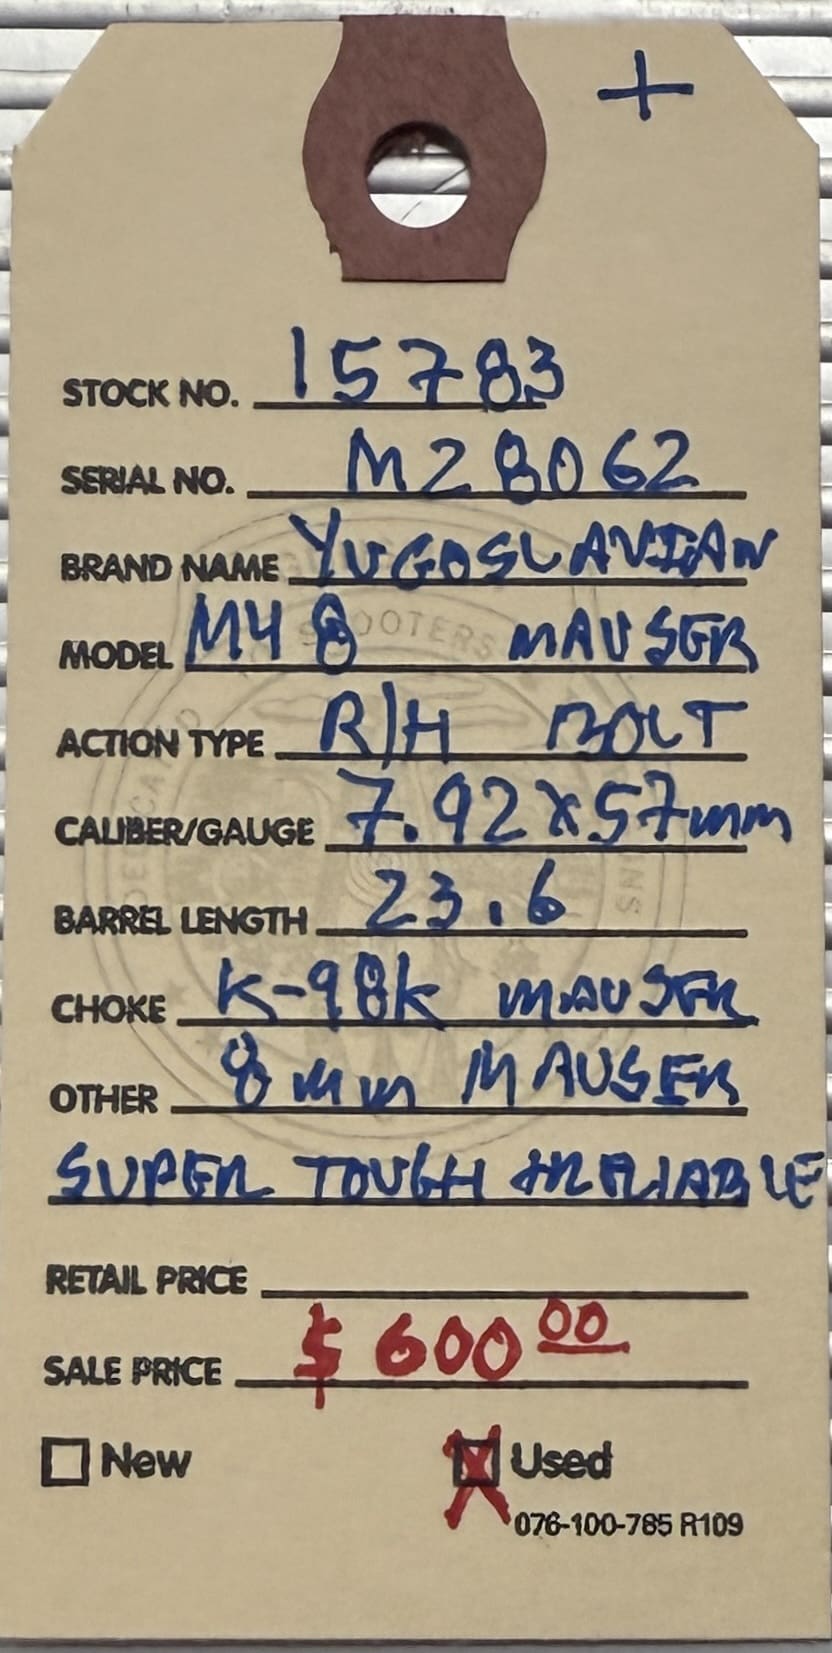 +
STOCK NO. 15783
SERIAL NO. M28062
BRAND NAME YUGOSLAVIAN
MODEL M48 MAUSER
ACTION TYPE R/H BOLT
CALIBER/GAUGE 7.92x57mm
BARREL LENGTH 23.6
CHOKE K-98k MAUSER
OTHER 8mm MAUSER
SUPER TOUGH
RETAIL PRICE
SALE PRICE $600 00
New X Used
076-100-785 R109